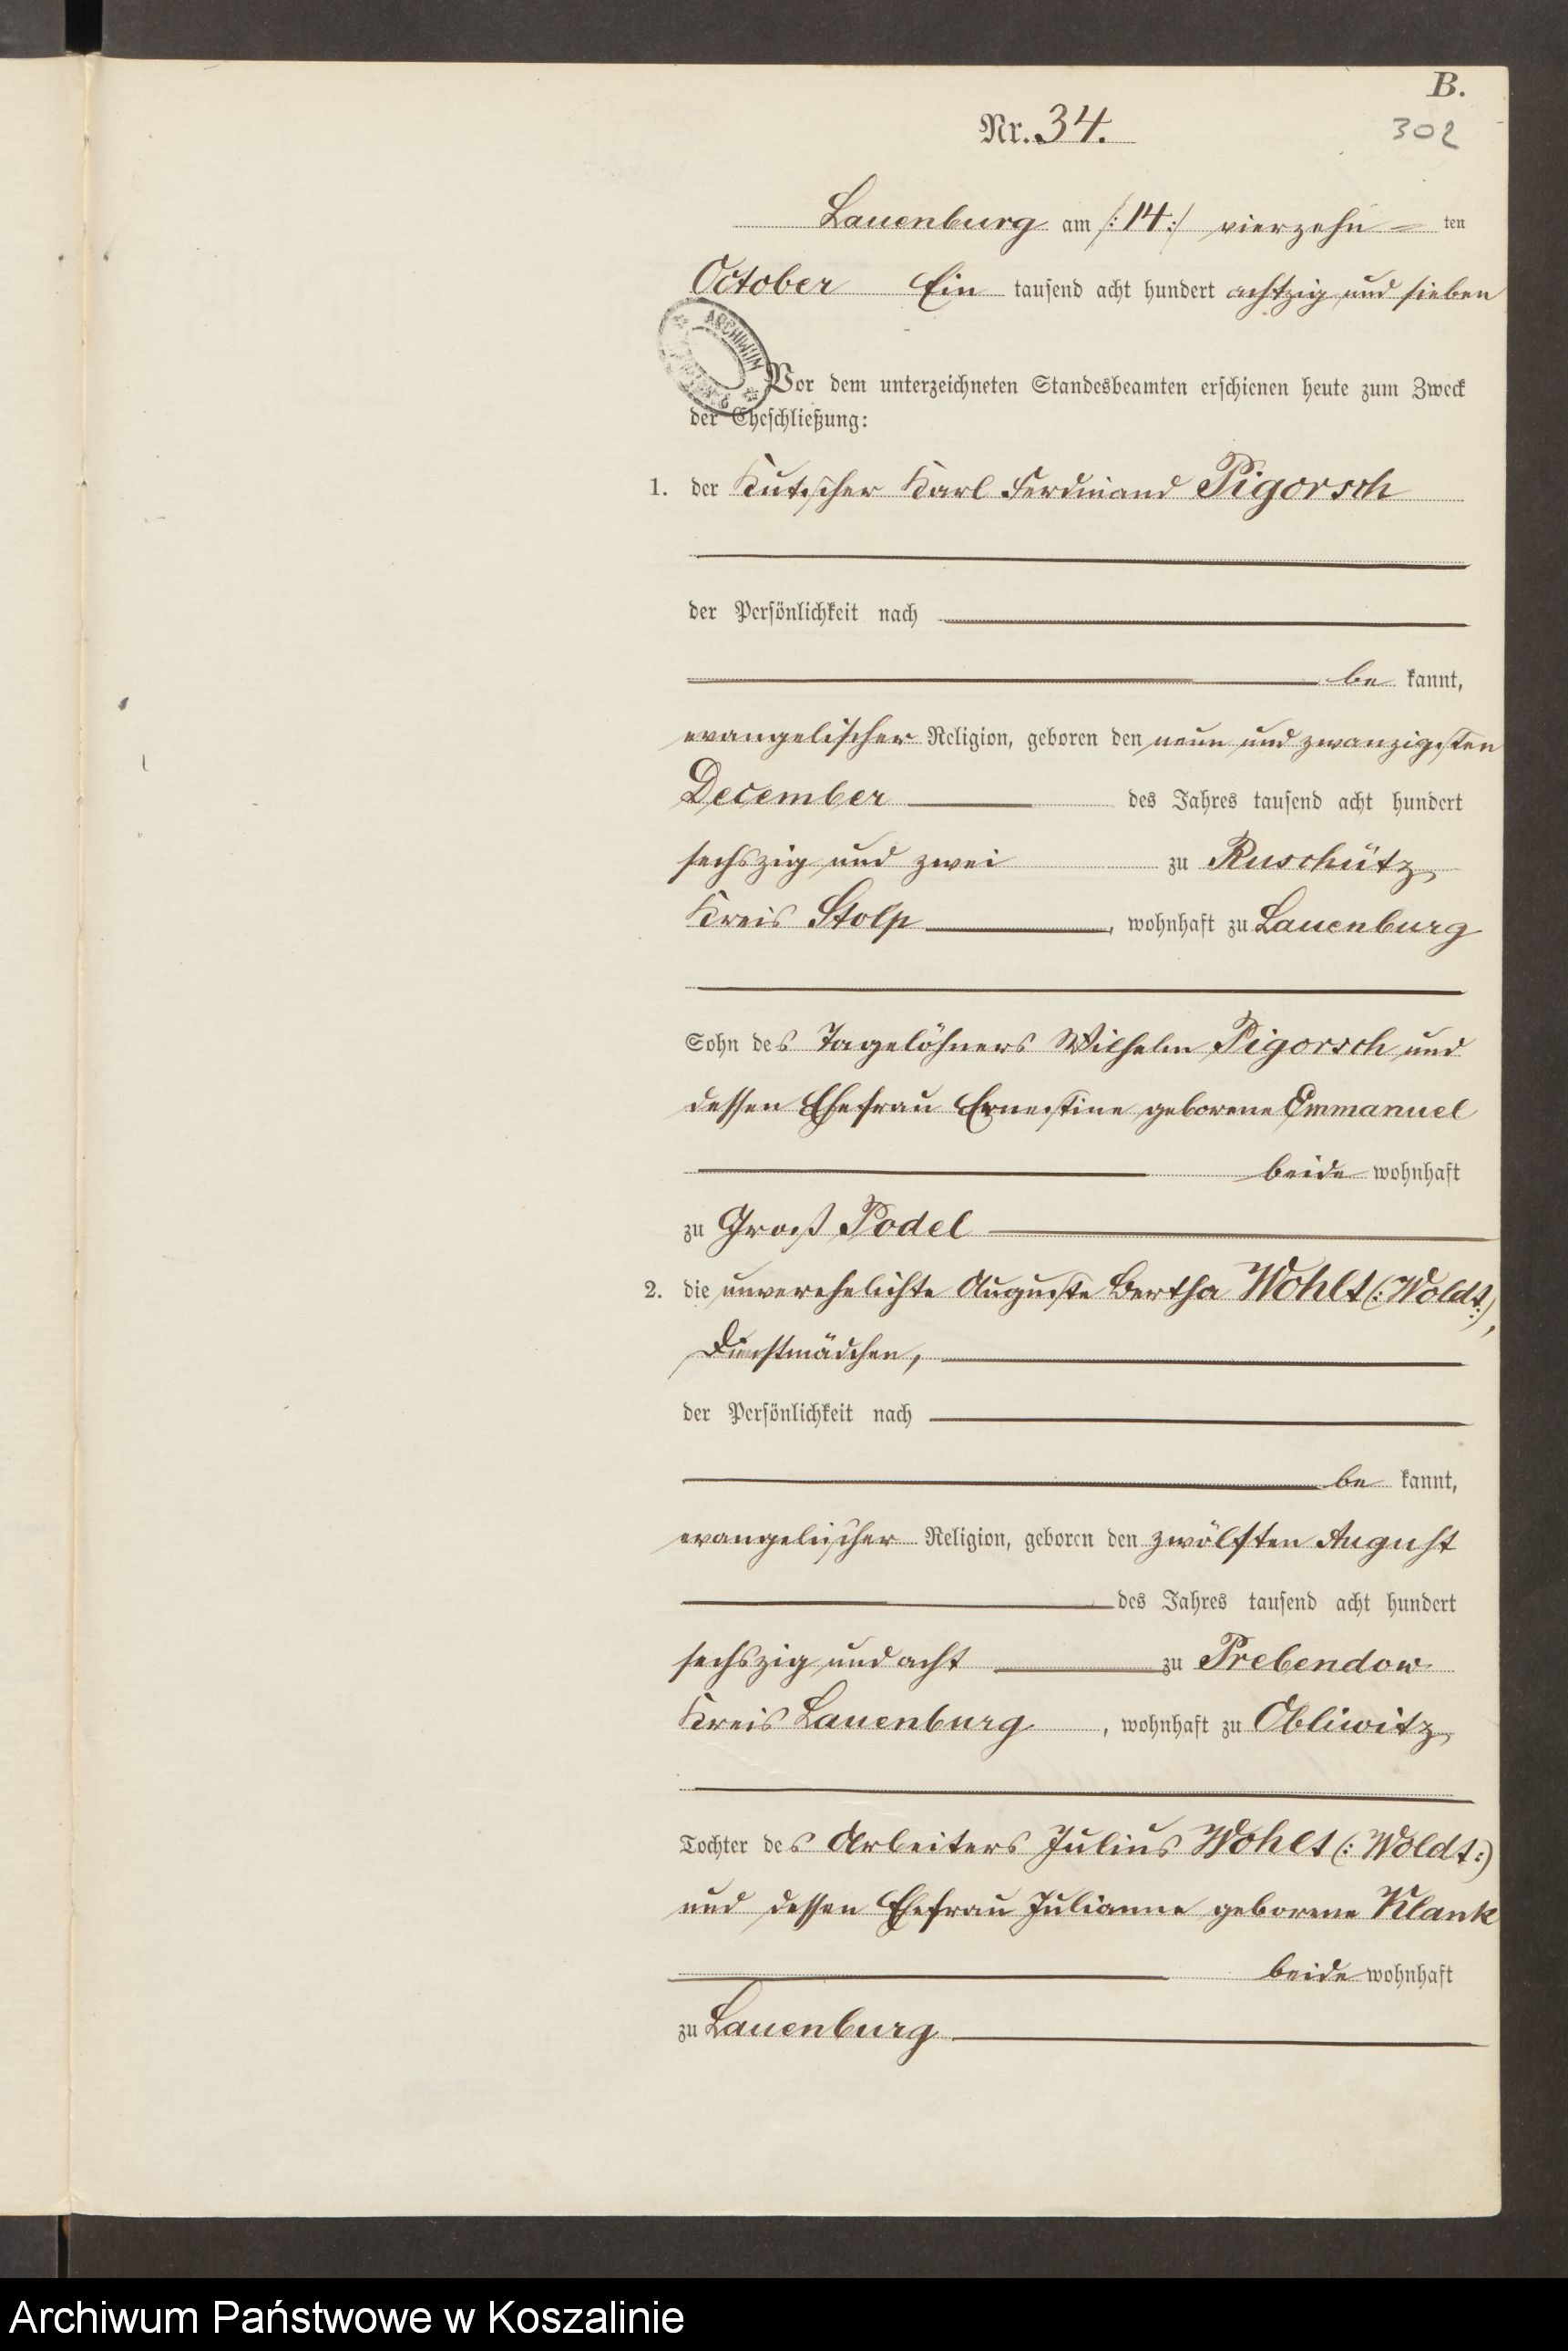 B.
Nr. 34.
302
Lauenburg am /: 14 :/ vierzehn ten
October Ein tausend acht hundert achtzig und sieben
ARCHIWUM
Vor dem unterzeichneten Standesbeamten erschienen heute zum Zweck
der Eheschließung:
1. der Kutscher Karl Ferdinand Pigorsch
der Persönlichkeit nach
be kannt,
evangelischer Religion, geboren den neun und zwanzigsten
December des Jahres tausend acht hundert
sechszig und zwei zu Ruschütz,
Kreis Stolp, wohnhaft zu Lauenburg
Sohn des Tagelöhners Wilhelm Pigorsch und
dessen Ehefrau Ernestine geborene Emmanuel
beide wohnhaft
zu Groß Podel
2. die unverehelichte Auguste Bertha Wohlt (: Woldt :),
Dienstmädchen,
der Persönlichkeit nach
be kannt,
evangelischer Religion, geboren den zwölften August
des Jahres tausend acht hundert
sechszig und acht zu Prebendow
Kreis Lauenburg, wohnhaft zu Obliwitz,
Tochter des Arbeiters Julius Wohlt (: Woldt :)
und dessen Ehefrau Julianne geborene Klank
beide wohnhaft
zu Lauenburg
Archiwum Państwowe w Koszalinie